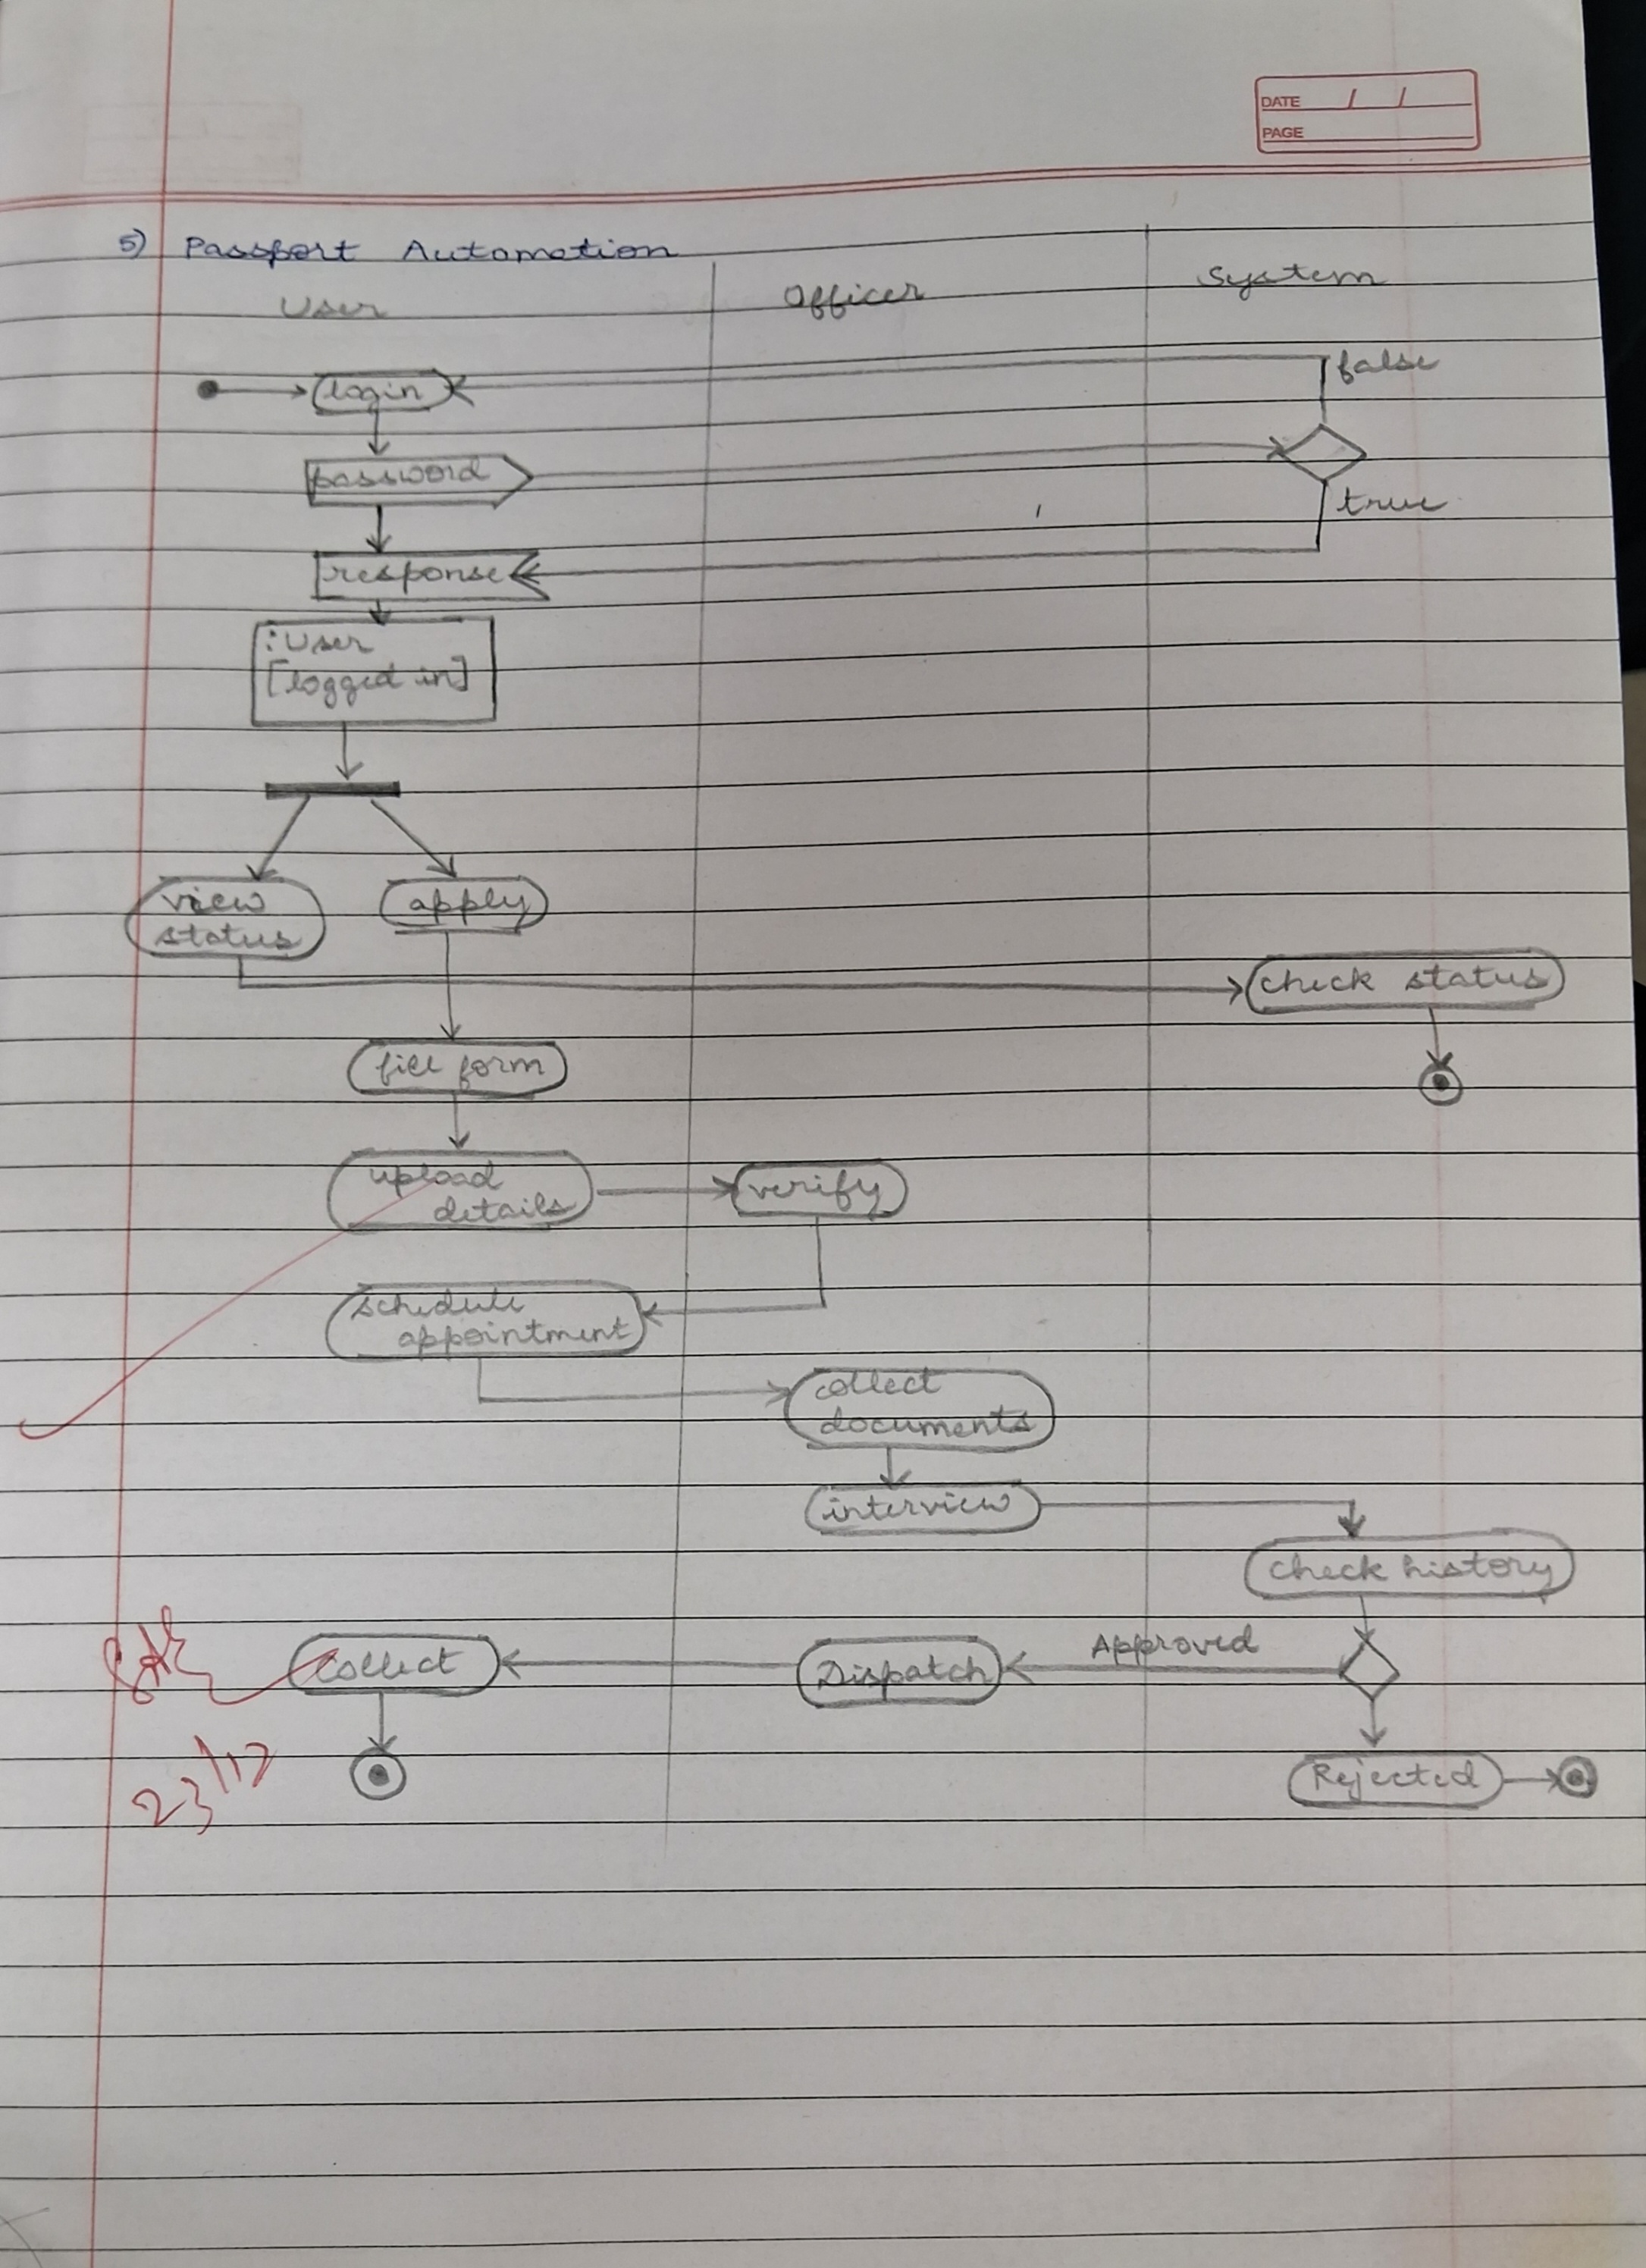 DATE / /
PAGE
5) Passport Automation
User Officer System
false
login
password
true
response
:User
[logged in]
view
status
apply
check status
fill form
upload
details
verify
schedule
appointment
collect
documents
interview
check history
Approved
Collect
Dispatch
Rejected